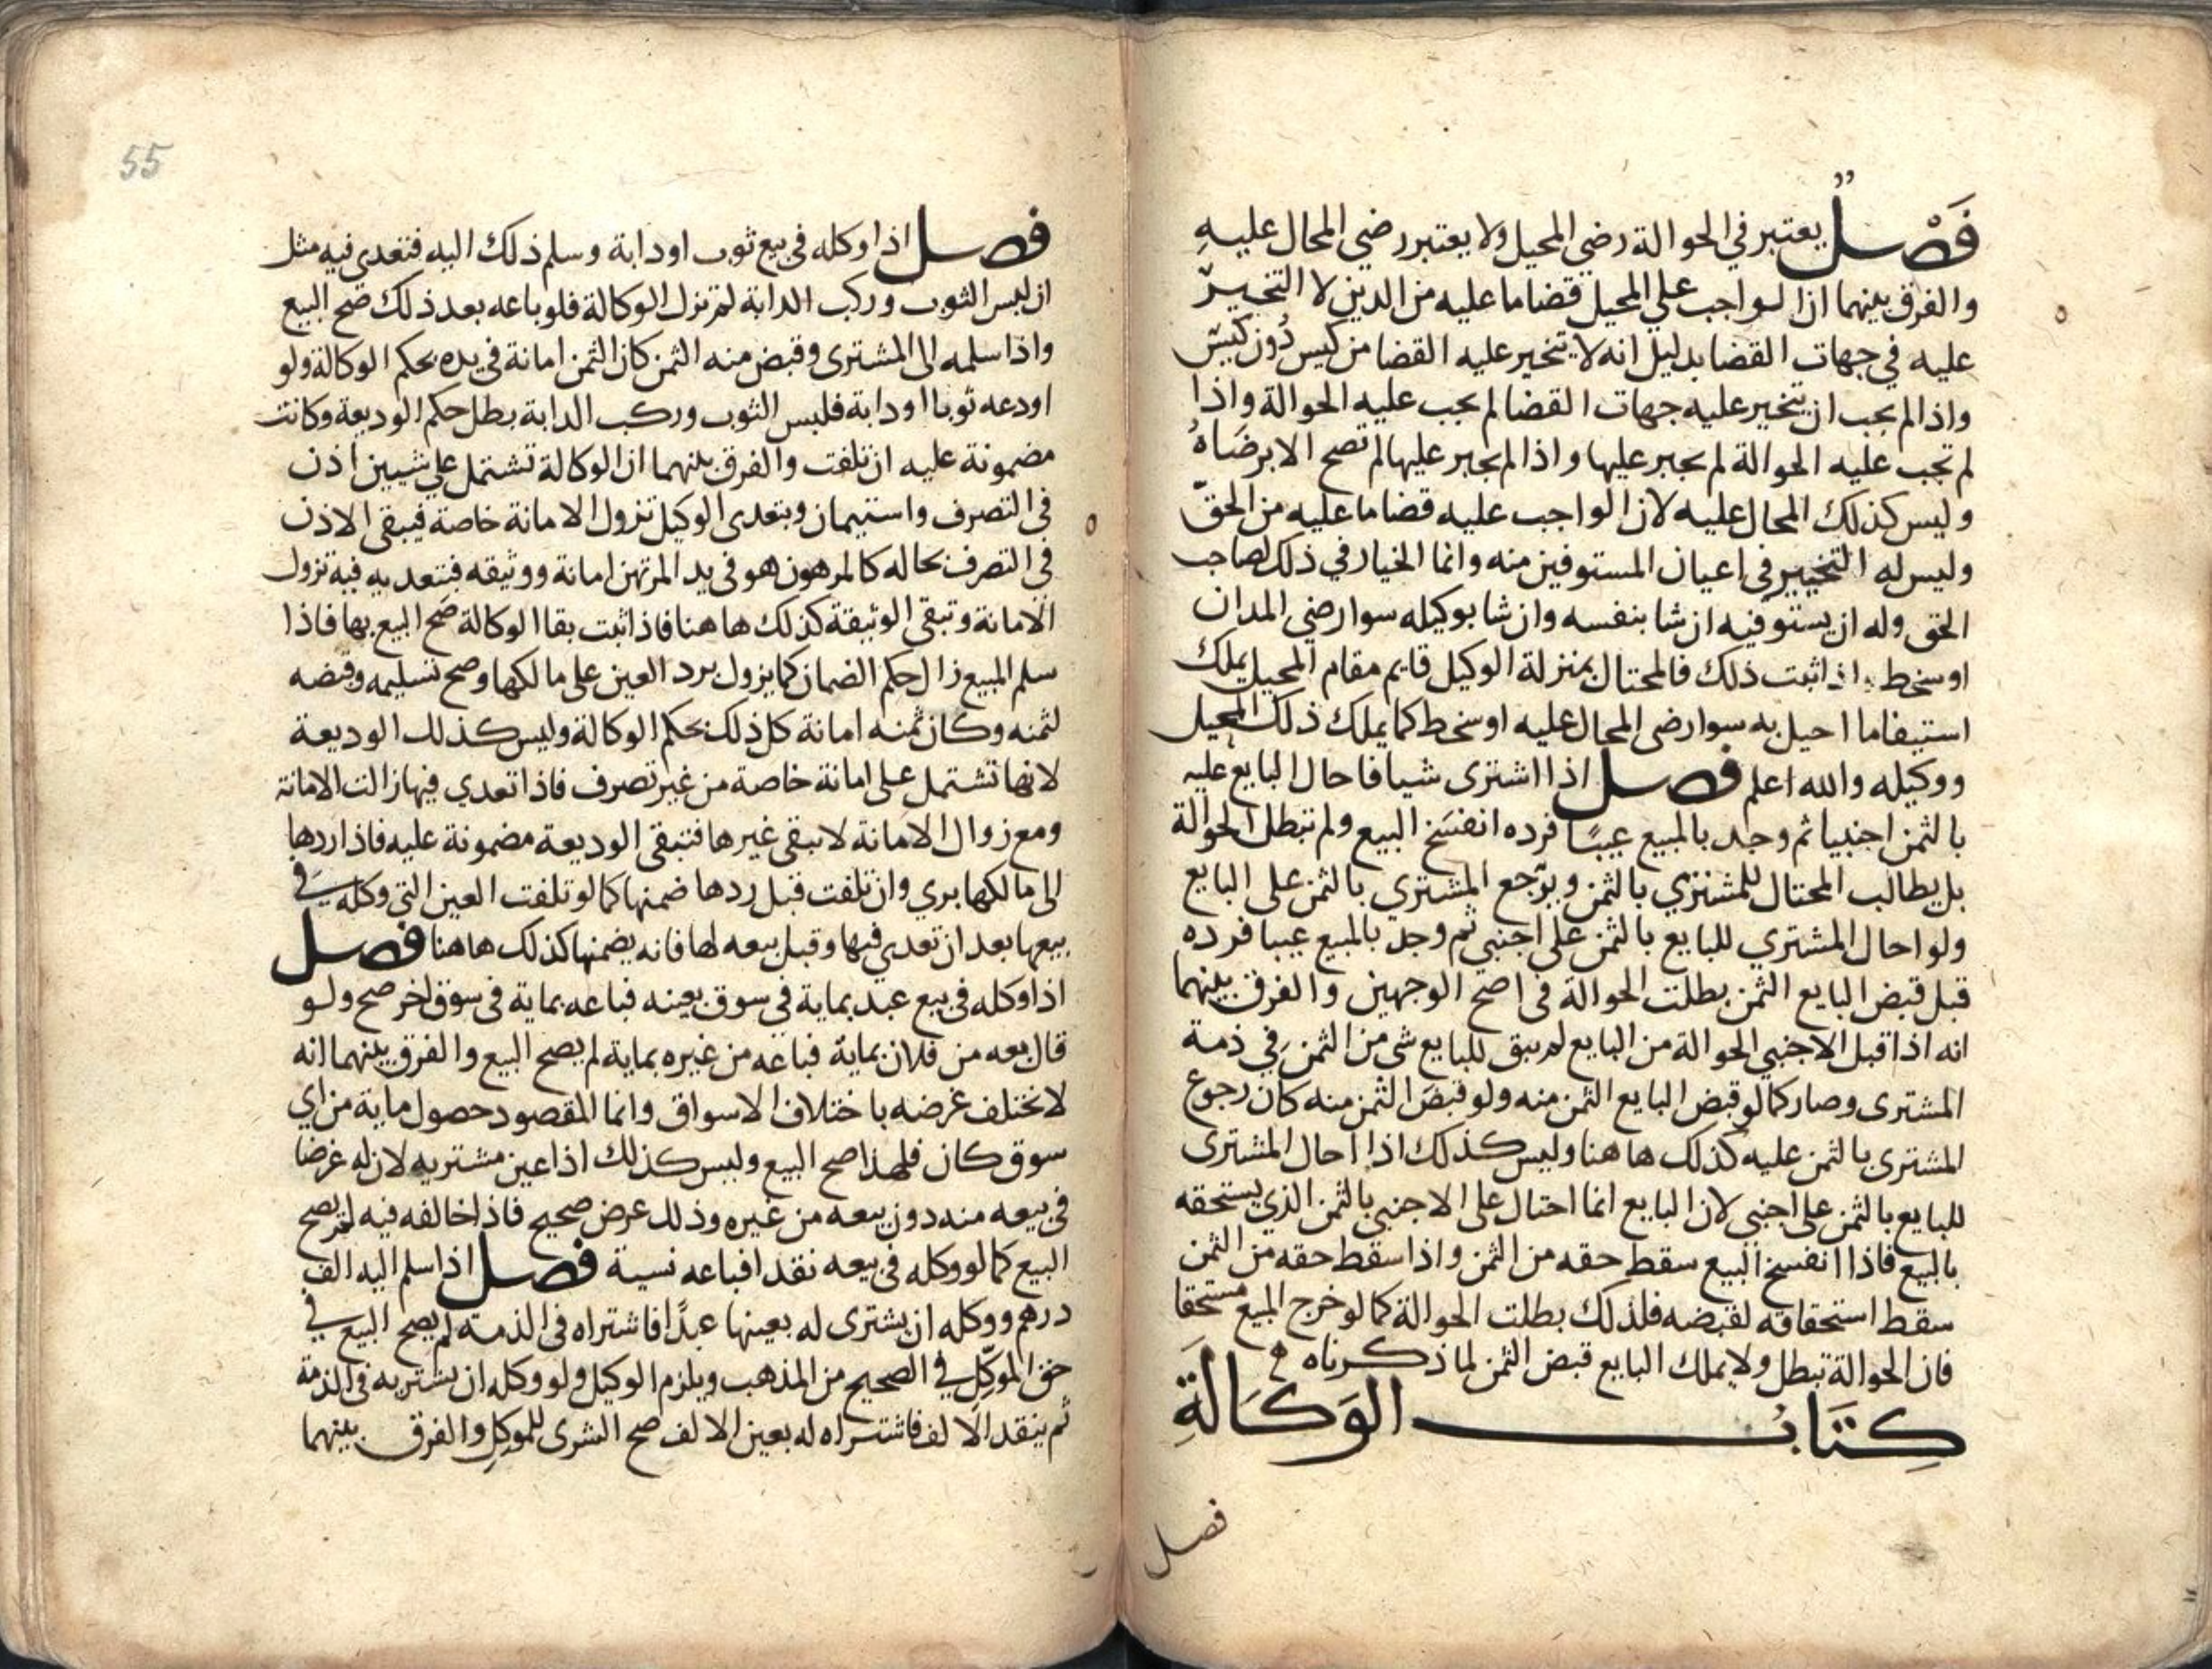 فَصْل يعتبر في الحوالة رضي المحيل ولا يعتبر رضي المحال عليهِ
والفرق بينهما ان الواجب علي المحيل قضا ما عليه من الدين لا التخيّر
عليه في جهات القضا بدليل انه لا يتخير عليه القضا من كيس دُون كيسٍ
واذا لم يجب ان يتخير عليه جهات القضا لم يجب عليه الحوالة واذا
لم تجب عليه الحوالة لم يجبر عليها واذا لم يجبر عليها لم تصح الا برضَاهُ
وليس كذلك المحال عليه لان الواجب عليه قضا ما عليه من الحقّ
وليس له التخيير في اعيان المستوفين منه وانما الخيار في ذلك لصاحب
الحق وله ان يستوفيه ان شا بنفسه وان شا بوكيله سوا رضي المدان
او سخط واذا ثبت ذلك فالمحتال بمنزلة الوكيل قايم مقام المحيل يملك
استيفا ما احيل به سوا رضي المحال عليه او سخط كما يملك ذلك المحيل
ووكيله والله اعلم فصل اذا اشترى شيا فاحال البايع عليه
بالثمن اجنبيا ثم وجد بالمبيع عيبًا فرده انفسَخ البيع ولم تبطل الحوالة
بل يطالب المحتال للمشتري بالثمن ويرجع المشتري بالثمن على البايع
ولو احال المشتري للبايع بالثمن على اجنبي ثم وجد بالمبيع عيبا فرده
قبل قبض البايع الثمن بطلت الحوالة في اصح الوجهين والفرق بينهما
انه اذا قبل الاجنبي الحوالة من البايع لم يبق للبايع شي من الثمن في ذمة
المشترى وصار كما لو قبض البايع الثمن منه ولو قبضَ الثمن منه كان رجوع
المشترى بالثمن عليه كذلك هاهنا وليس كذلك اذا احال المشترى
للبايع بالثمن على اجنبي لان البايع انما احتال على الاجنبي بالثمن الذي يستحقه
بالبيع فاذا انفسخ البيع سقط حقه من الثمن واذا سقط حقه من الثمن
سقط استحقاقه لقبضه فلذلك بطلت الحوالة كما لو خرج المبيع مستحقا
فان الحوالة تبطل ولا يملك البايع قبض الثمن لما ذكرناه
كِتَابُ الوَكَالَةِ
فصل
55
فصل اذا وكله في بيع ثوب او دابة وسلم ذلك اليه فتعدى فيه مثل
ان لبس الثوب وركب الدابة لم تزل الوكالة فلو باعه بعد ذلك صح البيع
واذا سلمه الى المشترى وقبض منه الثمن كان الثمن امانة في يده بحكم الوكالة ولو
اودعه ثوبا او دابة فلبس الثوب وركب الدابة بطل حكم الوديعة وكانت
مضمونة عليه ان تلفت والفرق بينهما ان الوكالة تشتمل على شيين اذن
في التصرف واستيمان وبتعدى الوكيل تزول الامانة خاصة فيبقى الاذن
في التصرف بحاله كالمرهون هو في يد المرتهن امانة ووثيقه فبتعديه فيه تزول
الامانة وتبقى الوثيقة كذلك هاهنا فاذا ثبت بقا الوكالة صح البيع بها فاذا
سلم المبيع زال حكم الضمان كما يزول برد العين على مالكها وصح تسليمه وقبضه
لثمنه وكان ثمنه امانة كل ذلك بحكم الوكالة وليس كذلك الوديعة
لانها تشتمل على امانة خاصة من غير تصرف فاذا تعدي فيها زالت الامانة
ومع زوال الامانة لا يبقى غيرها فتبقى الوديعة مضمونة عليه فاذا ردها
الى مالكها بري وان تلفت قبل ردها ضمنها كما لو تلفت العين التي وكله في
بيعها بعد ان تعدى فيها وقبل بيعه لها فانه يضمنها كذلك هاهنا فصل
اذا وكله في بيع عبد بماية في سوق بعينه فباعه بماية في سوق اخر صح ولو
قال بعه من فلان بماية فباعه من غيره بماية لم يصح البيع والفرق بينهما انه
لا يختلف غرضه باختلاف الاسواق وانما المقصود حصول ماية من اي
سوق كان فلهذا صح البيع وليس كذلك اذا عين مشتريه لان له غرضا
في بيعه منه دون بيعه من غيره وذلك غرض صحيح فاذا خالفه فيه لم يصح
البيع كما لو وكله في بيعه نقدا فباعه نسية فصل اذا سلم اليه الف
درهم ووكله ان يشترى له بعينها عبدًا فاشتراه في الذمة لم يصح البيع في
حق الموكِّل في الصحيح من المذهب ويلزم الوكيل ولو وكله ان يشتريه في الذمة
ثم ينقد الالف فاشتراه له بعين الالف صح الشرى للموكِل والفرق بينهما